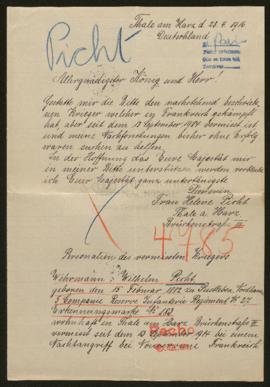 Thale am Harz d 28. 2. 1916
Deutschland
Picht
Allergnädigster König und Herr!
Gestatte mir die Bitte den nachstehend beschriebe-
nen Krieger welcher in Frankreich gekämpft
hat, aber seit dem 13 September 1914 vermisst ist
und meine Nachforschungen bisher ohne Erfolg
waren suchen zu helfen.
In der Hoffnung das Eure Majestät mir
in meiner Bitte unterstützen werden verbleibe
ich Eurer Majestät ganz untertänigste
Dienerin
Frau Helene Picht
Thale a. Harz
Brückenstraße
4765
Personalien des vermissten Kriegers
Wehrmann: Wilhelm Picht
geboren den 15 Februar 1882 zu
5 Kompanie Reserve Infanterie Regiment No 27
Erkennungsmarke No 183
wohnhaft in Thale am Harz Brückenstraße
vermisst seit dem 13 1914 bei einem
Nachtangriff bei Frankreich